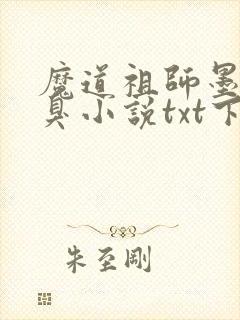 魔道祖師墨
臭小説txt下
朱至剛